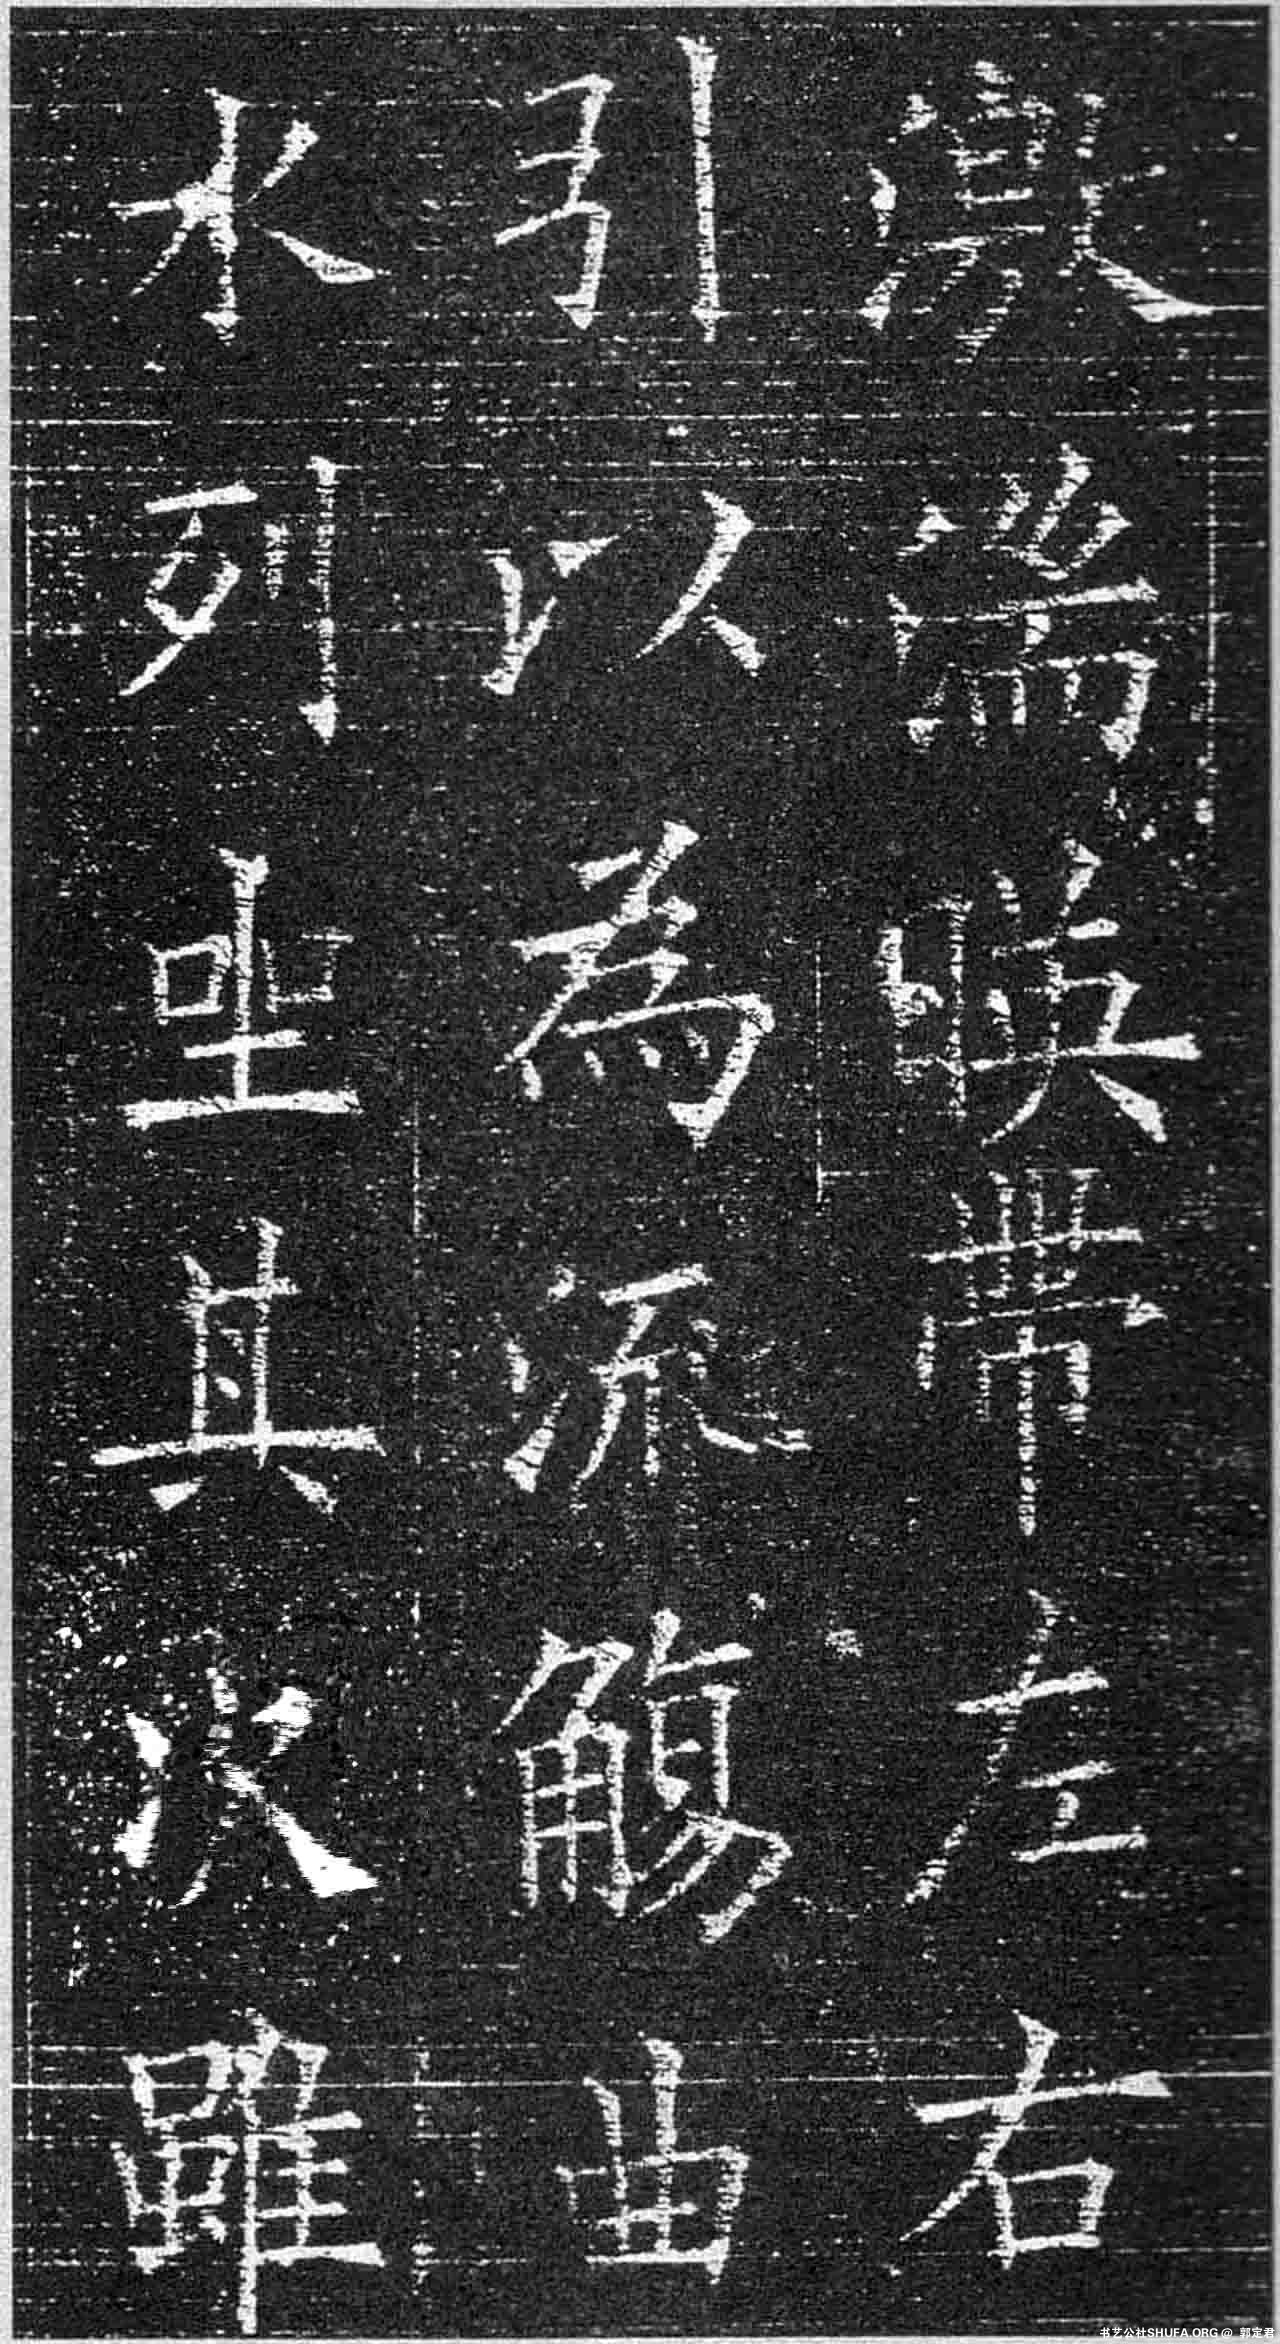 激湍暎帶左右
引以為流觴曲
水列坐其次雖
书艺公社SHUFA.ORG@ 郭定君